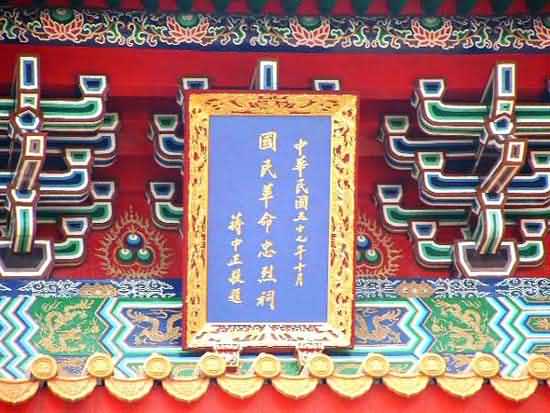 中華民國五十九年十月
國民革命忠烈祠
蔣中正敬題